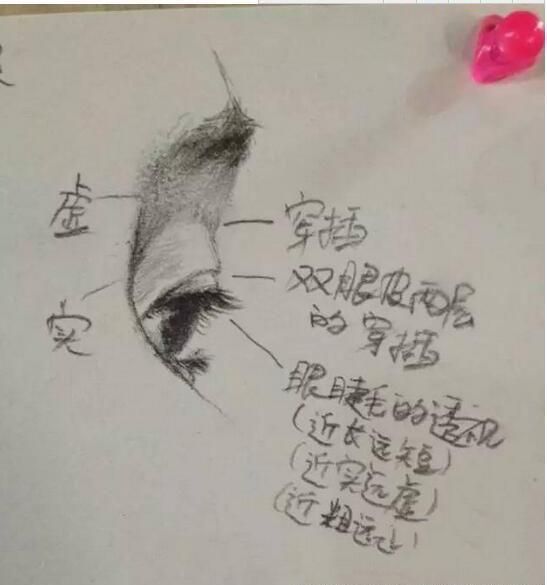 虚
实
穿插
双眼皮两层
的穿插
眼睫毛的透视
(近长远短)
(近实远虚)
(近粗远